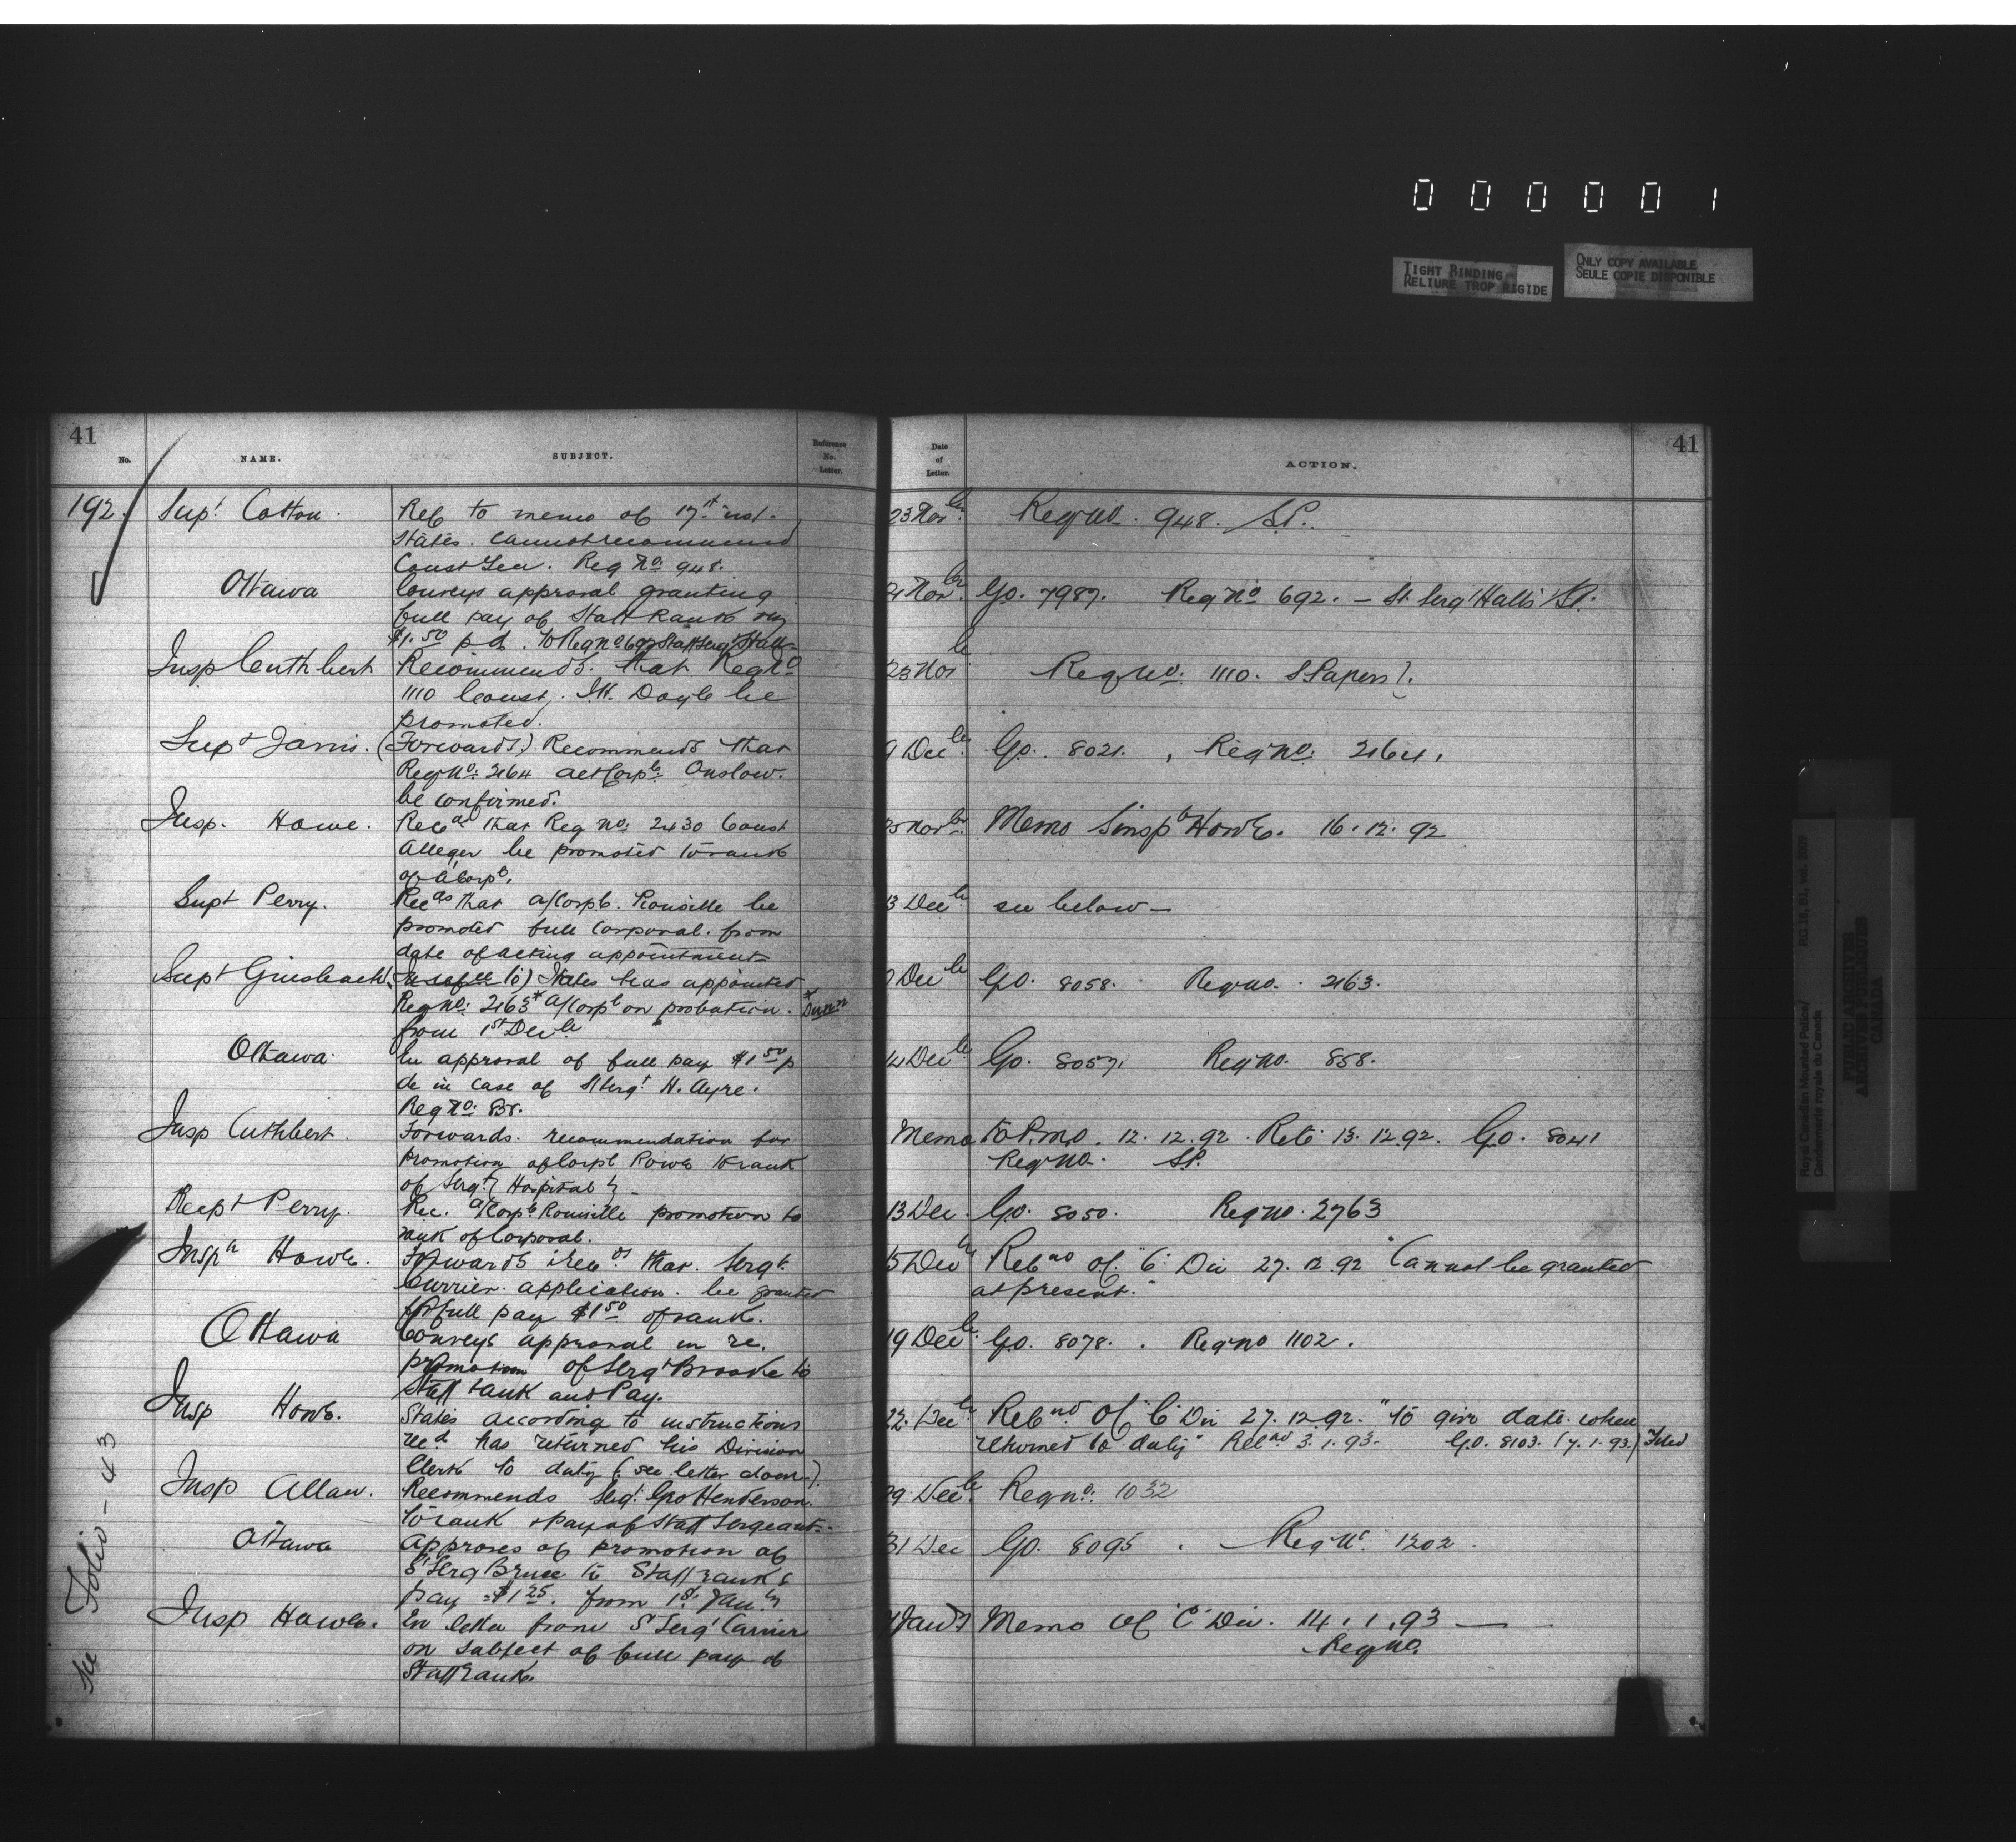 0 0 0 0 0 1
TIGHT BINDING
RELIURE TROP RIGIDE
ONLY COPY AVAILABLE
SEULE COPIE DISPONIBLE
41
No.
NAME.
SUBJECT.
Reference
No.
Letter.
Date
of
Letter.
ACTION.
41
192. Supt Cotton. Ref to memo of 17th inst. 23 Novbr. Regno. 948. S.P.
States. cannot recommend
Const Gen. Reg No: 948.
Ottawa Conveys approval granting Novbr. Go. 7987. Reg No 692. – St. Sergt Halls S.P.
full pay of Staff Rank
$1.50 p.d. to Reg No 692 Staff Sergt Hall
Insp Cuthbert Recommends. that Reg No 23 Nov Regno: 1110. S. Papers.
1110 Const. Doyle be
promoted.
Supt Jarvis. (Forwards.) Recommends that 9 Decbr. Go. 8021. Regno: 2164.
Regno: 2164 act Corpl: Onslow.
be confirmed.
Insp. Howe. Recds that Reg No: 2430 Const Novbr. Memo Insp Howe. 16.12.92
Alleger be promoted to rank
of a/Corpl.
Supt Perry. Recds that a/Corpl. Rousille be 13 Decbr. see below –
promoted full Corporal. from
date of acting appointment
Supt Griesbach to) States has appointed Decbr Go. 8058. Regno. 2163.
Regno: 2163* a/Corpl on probation. * Dunn
from 1st Decbr
Ottawa En approval of full pay $1.50 p 14 Decbr Go. 8057. Regno. 858.
de in case of S/Sergt H. Ayre.
Reg No: 858.
Insp Cuthbert. Forwards. recommendation for Memo to P.M.O. 12.12.92. Retd 13.12.92. Go. 8041
promotion of Corpl Rowe to rank Regno. S.P.
of Sergt { Hospital }
Supt Perry. Rec. a/Corpl Rousille promotion to 13 Dec. Go. 8050. Regno. 2763
rank of Corporal.
Insp Howe. Forwards & recds that Sergt 15 Dec Refnd Of. "C" Div 27.12.92 "Cannot be granted
Currier. application. be granted at present."
for full pay $1.50 of rank.
Ottawa Conveys approval in re. 19 Decbr Go. 8078. Regno 1102.
promotion of Sergt Brooke to
Staff rank and Pay.
Insp Howe. States according to instructions 22. Decbr Refnd Of "C" Div 27.12.92. "to give date when
recd has returned his Division returned to duty" Recd 3.1.93. G.O. 8103. (7.1.93.) Filed
Clerk to duty (see letter down).
Insp Allan. Recommends Sergt Geo Henderson. 29 Decbr. Regno: 1032
to rank & pay of Staff Sergeant.
Ottawa Approves of promotion of 31 Dec Go. 8095. Regno. 1202.
S/Serg Bruce to Staff rank &
pay $1.25. from 1st. Jany
Insp Howe. En letter from S Sergt Carrier Memo Of "C" Div. 14.1.93 —
on subject of full pay of Regno.
Staff rank.
Folio – 43
Royal Canadian Mounted Police/
Gendarmerie royale du Canada
RG 18, B1, vol. 2097
PUBLIC ARCHIVES
ARCHIVES PUBLIQUES
CANADA